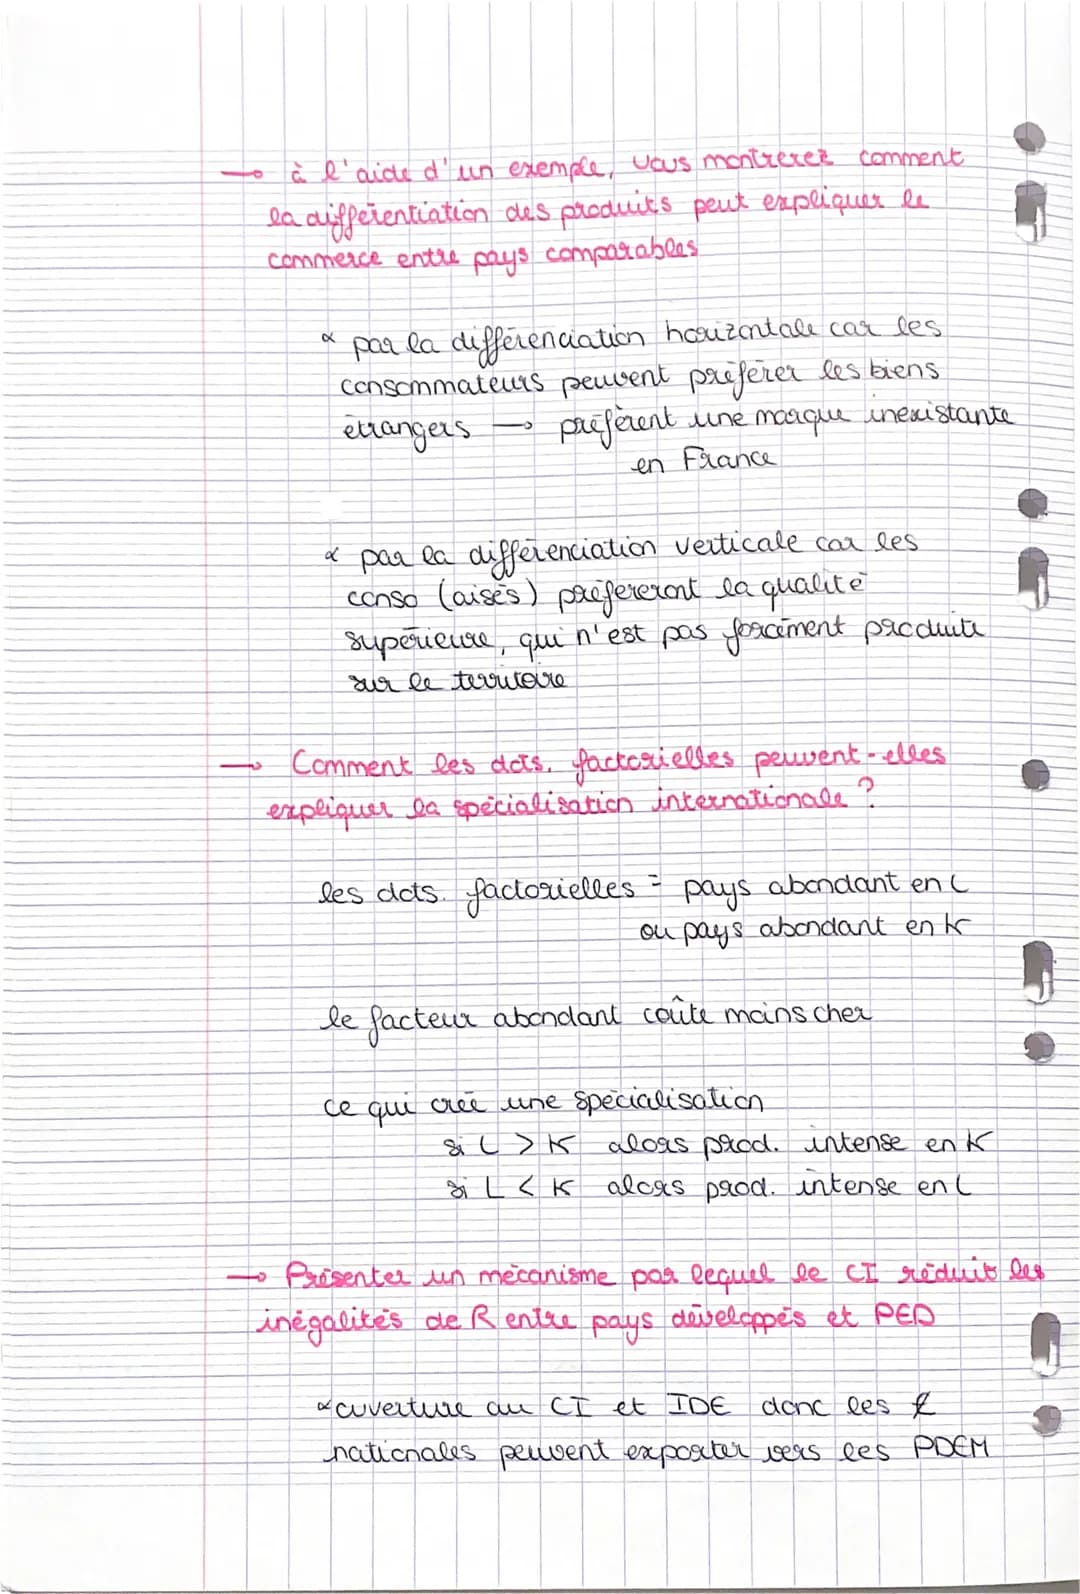 → à l'aide d'un exemple, vous montrerez comment
la différentiation des produits peut expliquer le
commerce entre pays comparables
∝ par la différenciation horizontale car les
consommateurs peuvent préférer les biens
étrangers → préfèrent une marque inexistante
en France
∝ par la différenciation verticale car les
conso (aisés) préfereront la qualité
supérieure, qui n'est pas forcément produite
sur le territoire
→ Comment les dots. factorielles peuvent-elles
expliquer la spécialisation internationale ?
les dots. factorielles = pays abondant en L
ou pays abondant en K
le facteur abondant coûte moins cher
ce qui créé une spécialisation
si L > K alors prod. intense en K
si L < K alors prod. intense en L
→ Présenter un mécanisme par lequel le CI réduit les
inégalités de R entre pays développés et PED
∝ ouverture au CI et IDE donc les
nationales peuvent exporter vers les PDEM